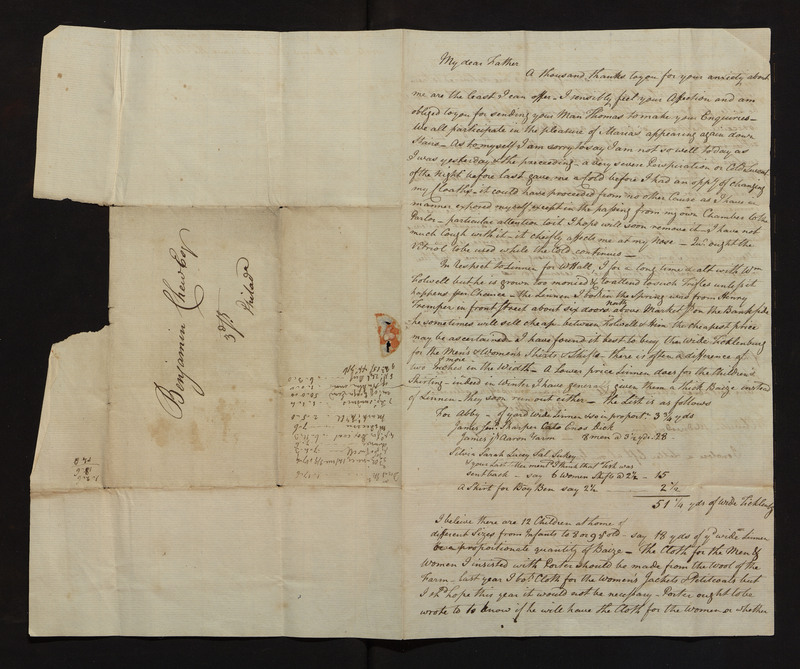 Benjamin Chew Esqr
3d St
Philada
My dear Father
A thousand thanks to you for your anxiety about
me are the least I can offer - I sensibly feel your Affection and am
obliged to you for sending your Man Thomas to make your Enquiries -
We all participate in the pleasure of Marias appearing again down
Stairs - As to myself I am sorry to say I am not so well to day as
I was yesterday & the preceeding - a very severe Perspiration or Cold Sweat
of the Night before last gave me a Cold before I had an oppy of changing
my Cloaths - it could have proceeded from no other Cause as I have in
manner exposed myself except in the passing from my own Chamber to the
Parlor - particular attention to it I hope will soon remove it - I have not
much Cough with it - it cheifly affects me at my Nose - ought the
Vitriol to be used while the Cold continues -
In respect to Linnen for WtHall, I for a long time dealt with Wm
Folwell but he is grown too monied to attend to such Trifles unless it
happens from Chance - the Linnen I bot in the Spring was from Henry
Tremper in front Street about six doors above Market St on the Bank side
he sometimes will sell cheap between Folwell & him the cheapest price
may be ascertained - I have found it best to buy the wide Ticklenburg
for the Men's & Womens Shirts & Shifts - there is often a difference of
two & more inches in the Width - a lower price Linnen does for the Children's
Shirting - indeed in Winter I have generally given them a thick Baize instead
of Linnen they soon ruin out either - The List is as follows
For Abby - of yard wide Linnen so in proportn: 3 3/4 yds
James Senr Sharper Cato Enos Dick
James jr Aaron Farm - 8 men a 3 1/2 yds. 28
Silvia Sarah Lucey Sal Sukey
& your last Mes ment I think that was
sent back - say 6 Women Shifts a 2 1/2 - 15
A Shirt for Boy Ben say 2 1/2 2 1/2
51 1/4 yds of wide Ticklenbg
I beleive there are 12 Children at home of
different Sizes from Infants to 8 or 9 Yrs old - say 18 yds of yd wide Linnen
or a proportionate quantity of Baize - The Cloth for the Men &
Women I insisted with Porter should be made from the Wool of the
Farm - last year I bot Cloth for the Womens Jackets & Petticoats but
I shd hope this year it would not be necessary - Porter ought to be
wrote to to know if he will have the Cloth for the Women or whether